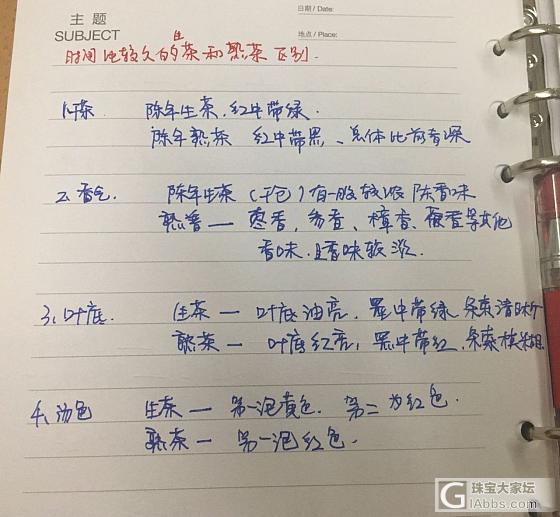 日期 / Date:
主 题
SUBJECT
地点 / Place:
时间比较久的生茶和熟茶区别.
1、叶茶 陈年生茶,红中带绿.
陈年熟茶 红中带黑、总体比前者深
2、香气 陈年生茶(干仓)有一股较浓陈香味
熟普— 枣香,参香、樟香、等其他
香味,且香味较淡.
3、叶底. 生茶— 叶底油亮,墨中带绿 条索清晰
熟茶— 叶底红亮,黑中带红,条索模糊
4、汤色 生茶— 第一泡黄色. 第二为红色.
熟茶— 第一泡红色.
珠宝大家坛
G1Abbs.com